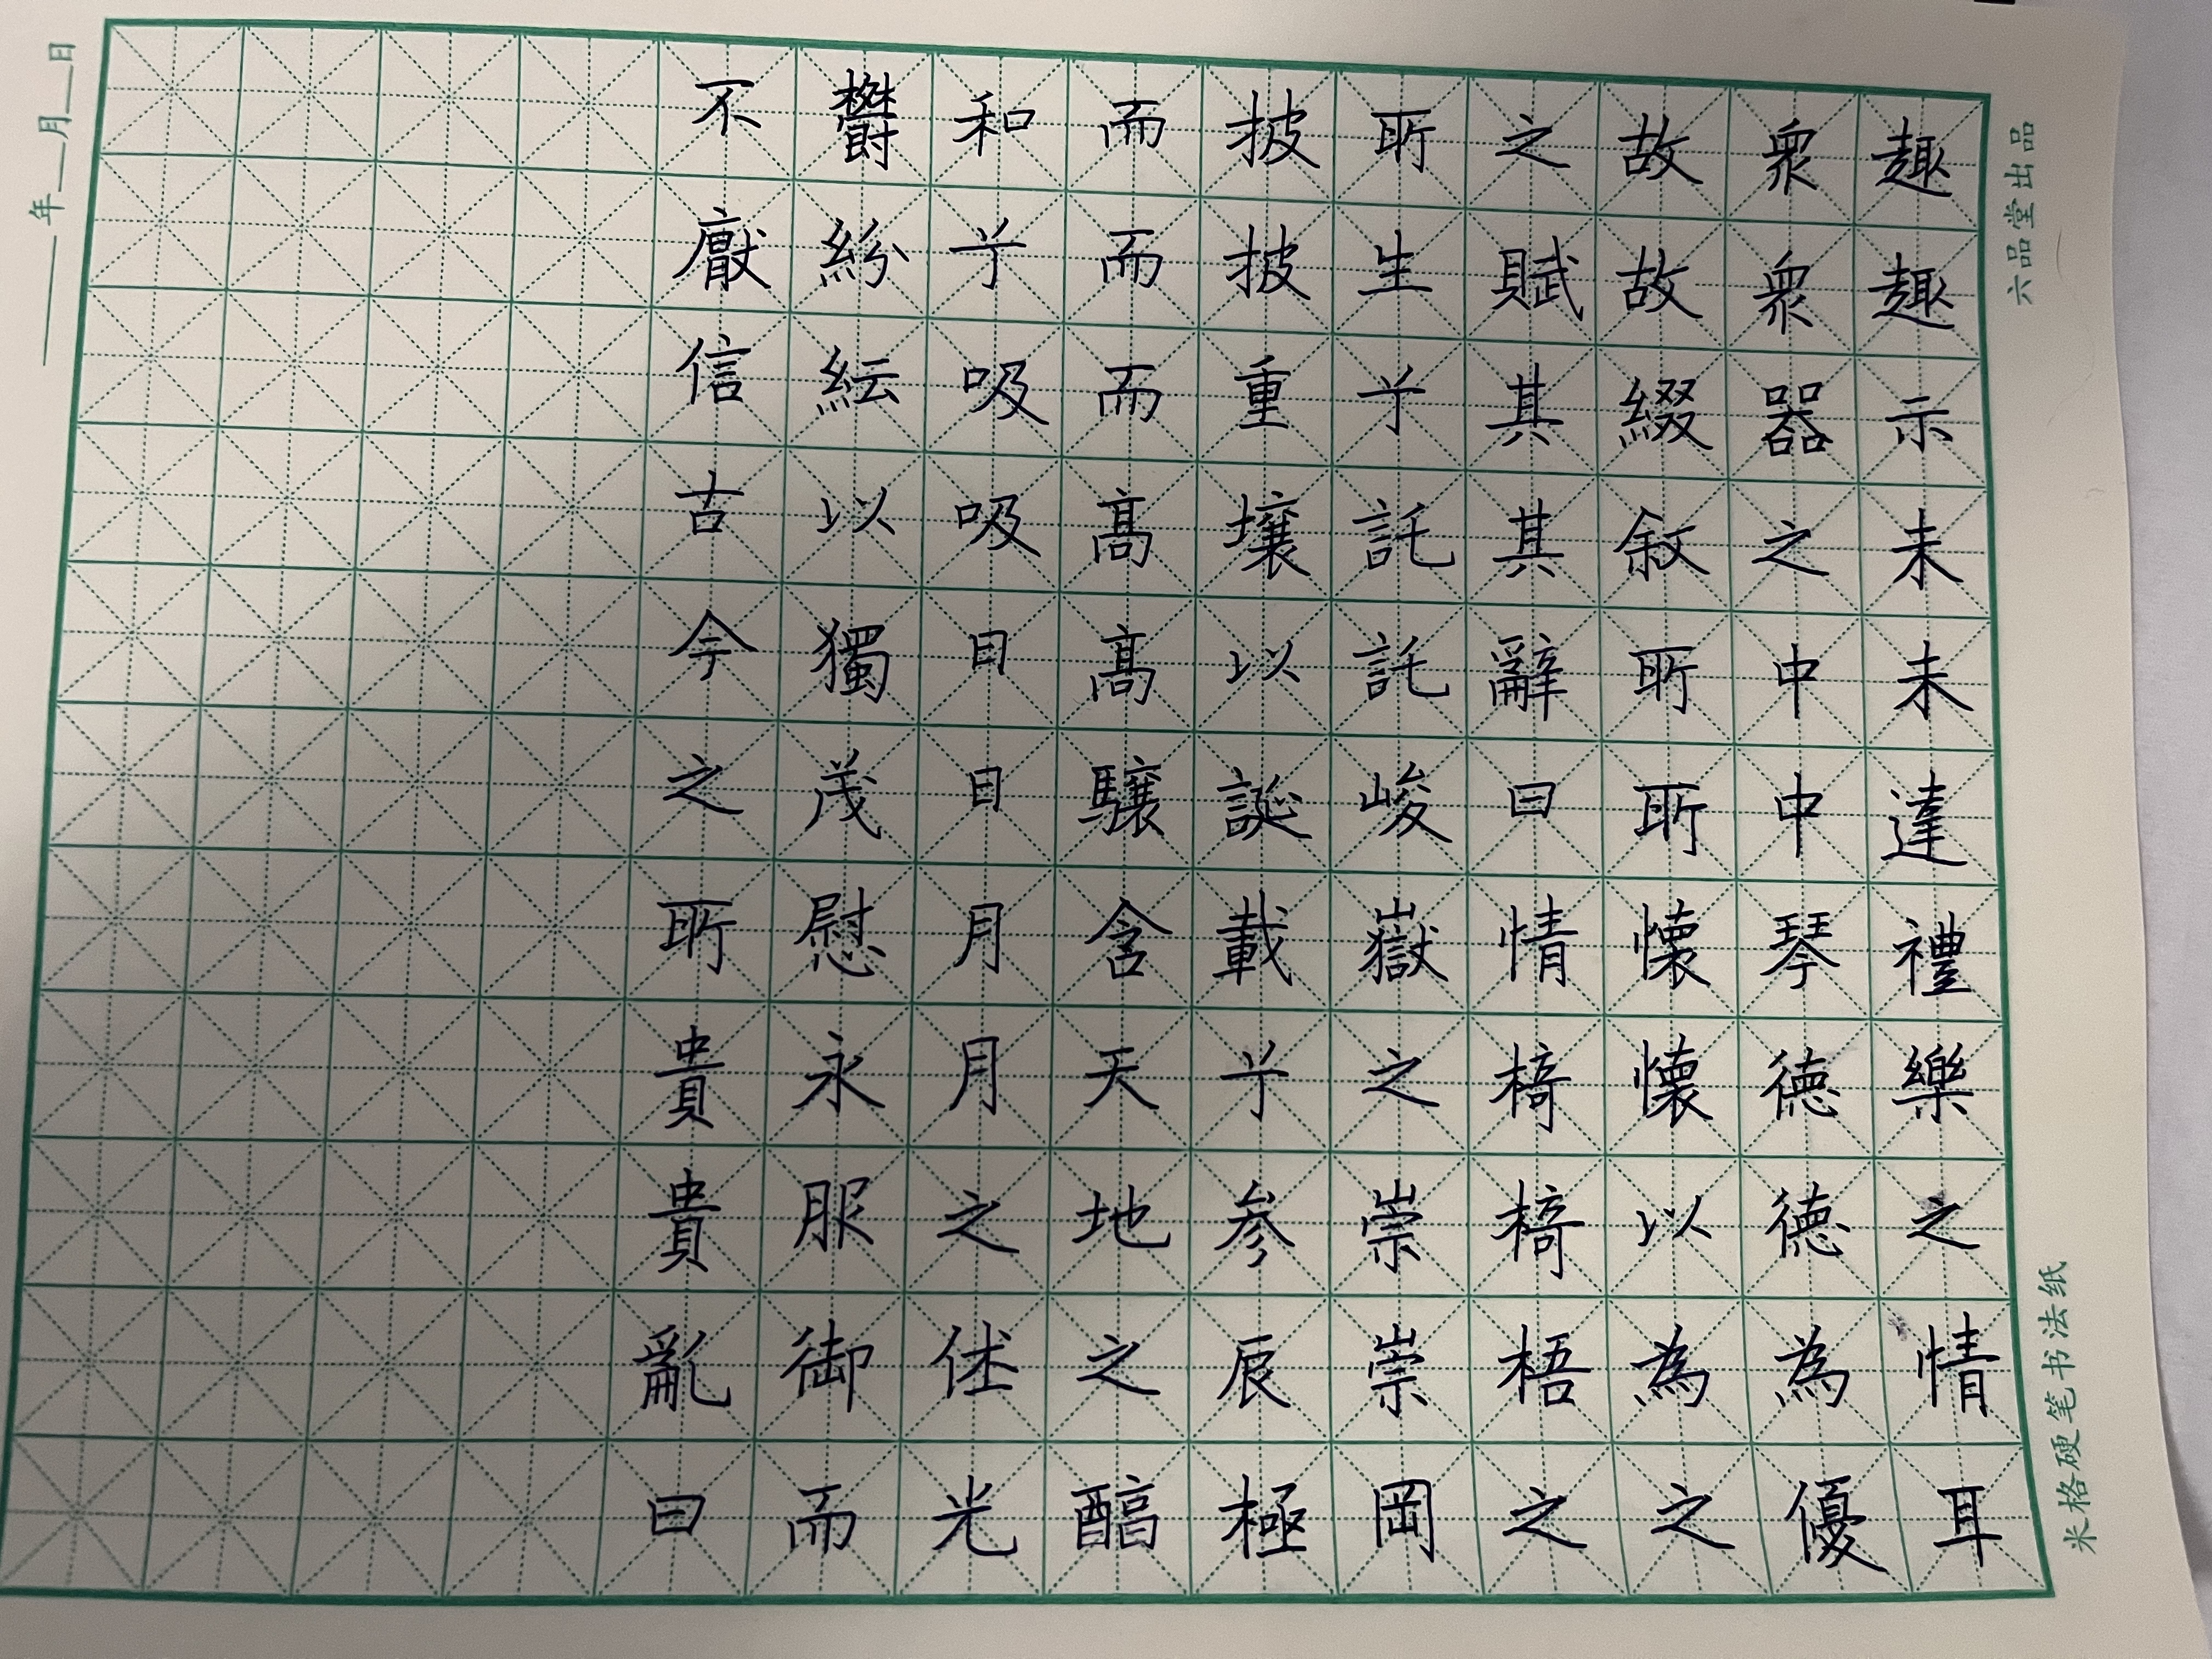 趣趣亦未未達禮樂之情耳
衆衆器之中中琴德德為優
故故綴敘所所懷懷以為之
之賦其其辭曰惟椅椅梧之
所生兮託託峻嶽之崇崇岡
披披重壤以誕載兮參辰極
而而而高高驤含天地之醇
和兮吸吸日日月月之休光
鬱紛紜以獨茂慰永服御而
不厭信古今之所貴貴亂曰
年 月 日
六品堂出品
米格硬笔书法纸